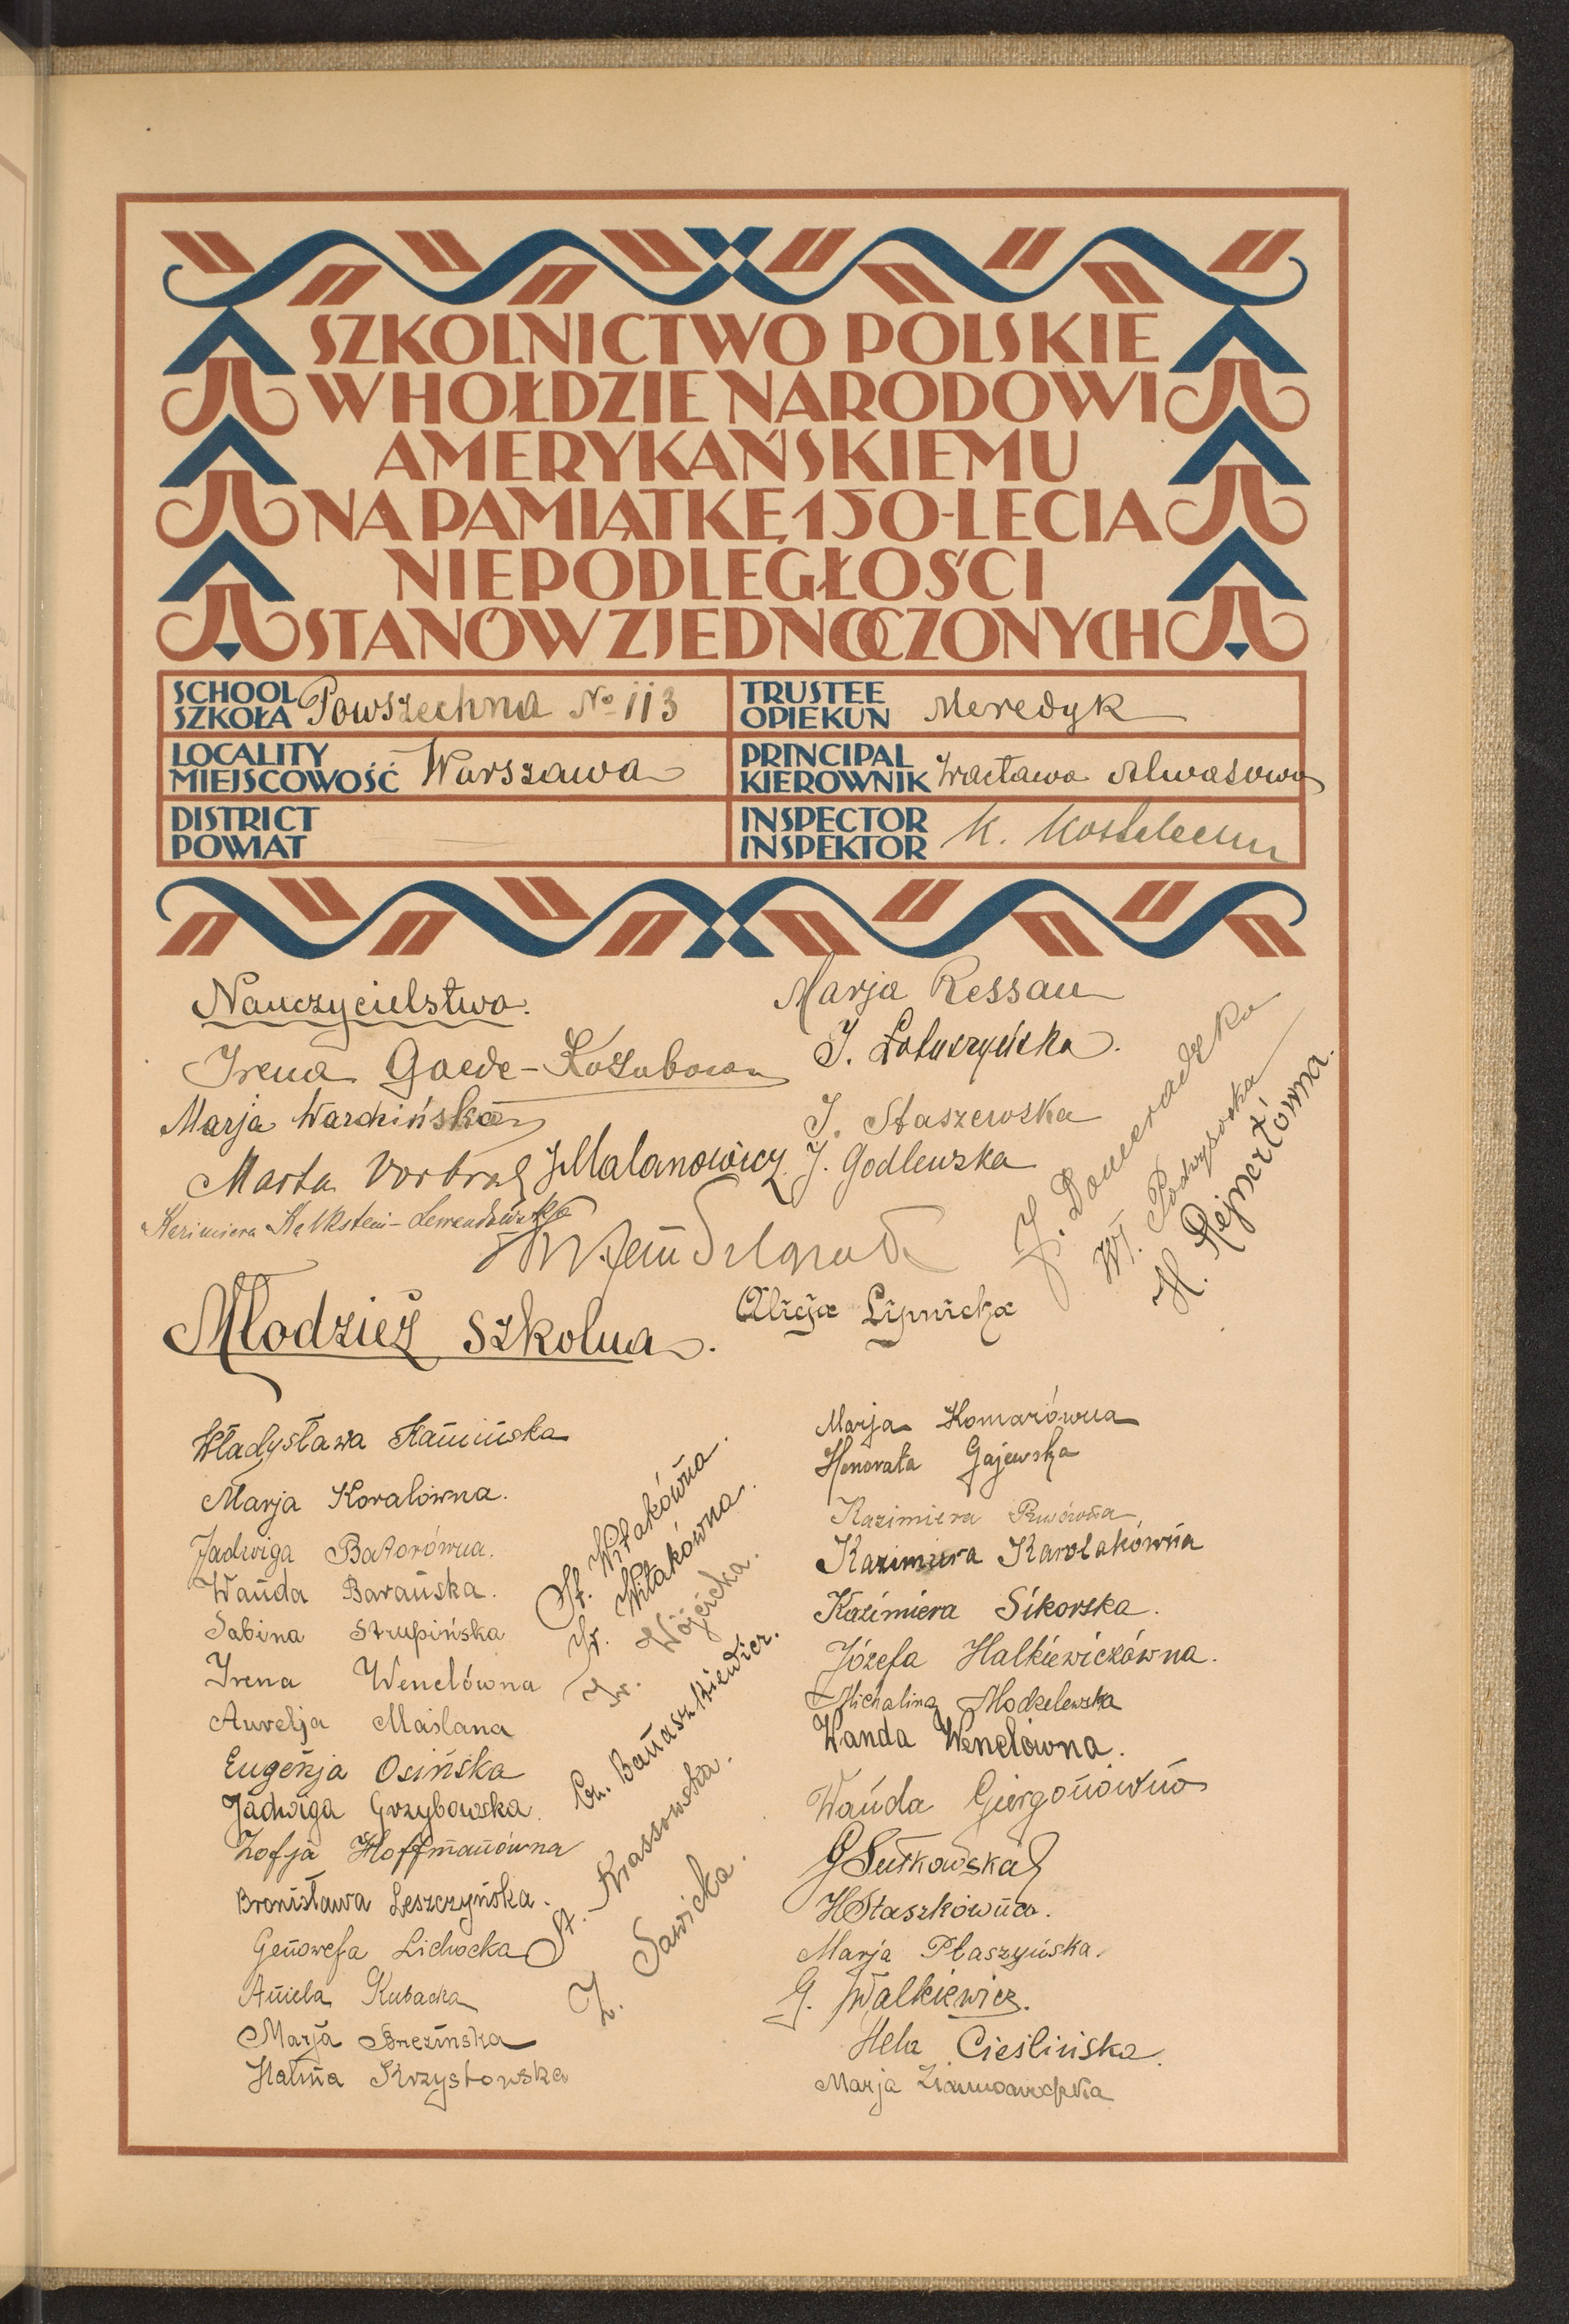 SZKOLNICTWO POLSKIE
W HOŁDZIE NARODOWI
AMERYKAŃSKIEMU
NA PAMIĄTKĘ 150-LECIA
NIEPODLEGŁOŚCI
STANÓW ZJEDNOCZONYCH
SCHOOL
SZKOŁA Powszechna № 113
TRUSTEE
OPIEKUN Meredyk
LOCALITY
MIEJSCOWOŚĆ Warszawa
PRINCIPAL
KIEROWNIK Wacława
DISTRICT
POWIAT
INSPECTOR
INSPEKTOR K.
Nauczycielstwo.
Marja Ressau
Irena Goede-Kozubowa
J. Łotuszyńska.
Marja Warchińska
J. Staszewska
Marta Vorbrol
J. Malanowicz
J. Godlewska
Kazimiera Kalkstein-Lewandowska
J. Domeradzka
Wł. Podwysocka
H. Rejnertówna.
Alicja Lipnicka
Młodzież szkolna.
Władysława Kamińska
Marja Koralówna.
Jadwiga Batorówna.
Wanda Barańska.
Sabina Strupińska
Irena Wenclówna
Aurelja Maślana
Eugenja Osińska
Jadwiga Grzybowska.
Zofja Hoffmanówna
Bronisława Leszczyńska.
Genowefa Lichocka
Aniela Kubacka
Marja Brezinska
Halina Krzystowska
St. Witakówna.
Ir. Witakówna.
Ir. Wójcicka.
Cz. Banaszkiewicz.
St. Krassowska.
Z. Sawicka.
Marja Komarówna
Honorata Gajewska
Kazimiera
Kazimiera Karolakówna
Kazimiera Sikorska.
Józefa Halkiewiczówna.
Michalina Modzelewska
Wanda Wenclówna.
Wanda Giergonówna
G Sułkowska
H Staszkówna.
Marja Płaszyńska.
G. Walkiewicz.
Hela Cieślińska.
Marja